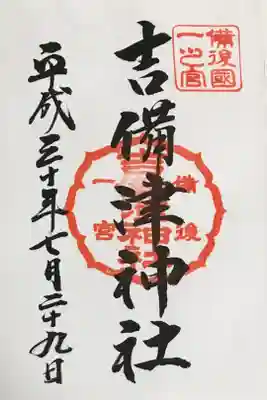 備後國
一之宮
吉備津神社
備後
一宮
平成三十年七月二十九日